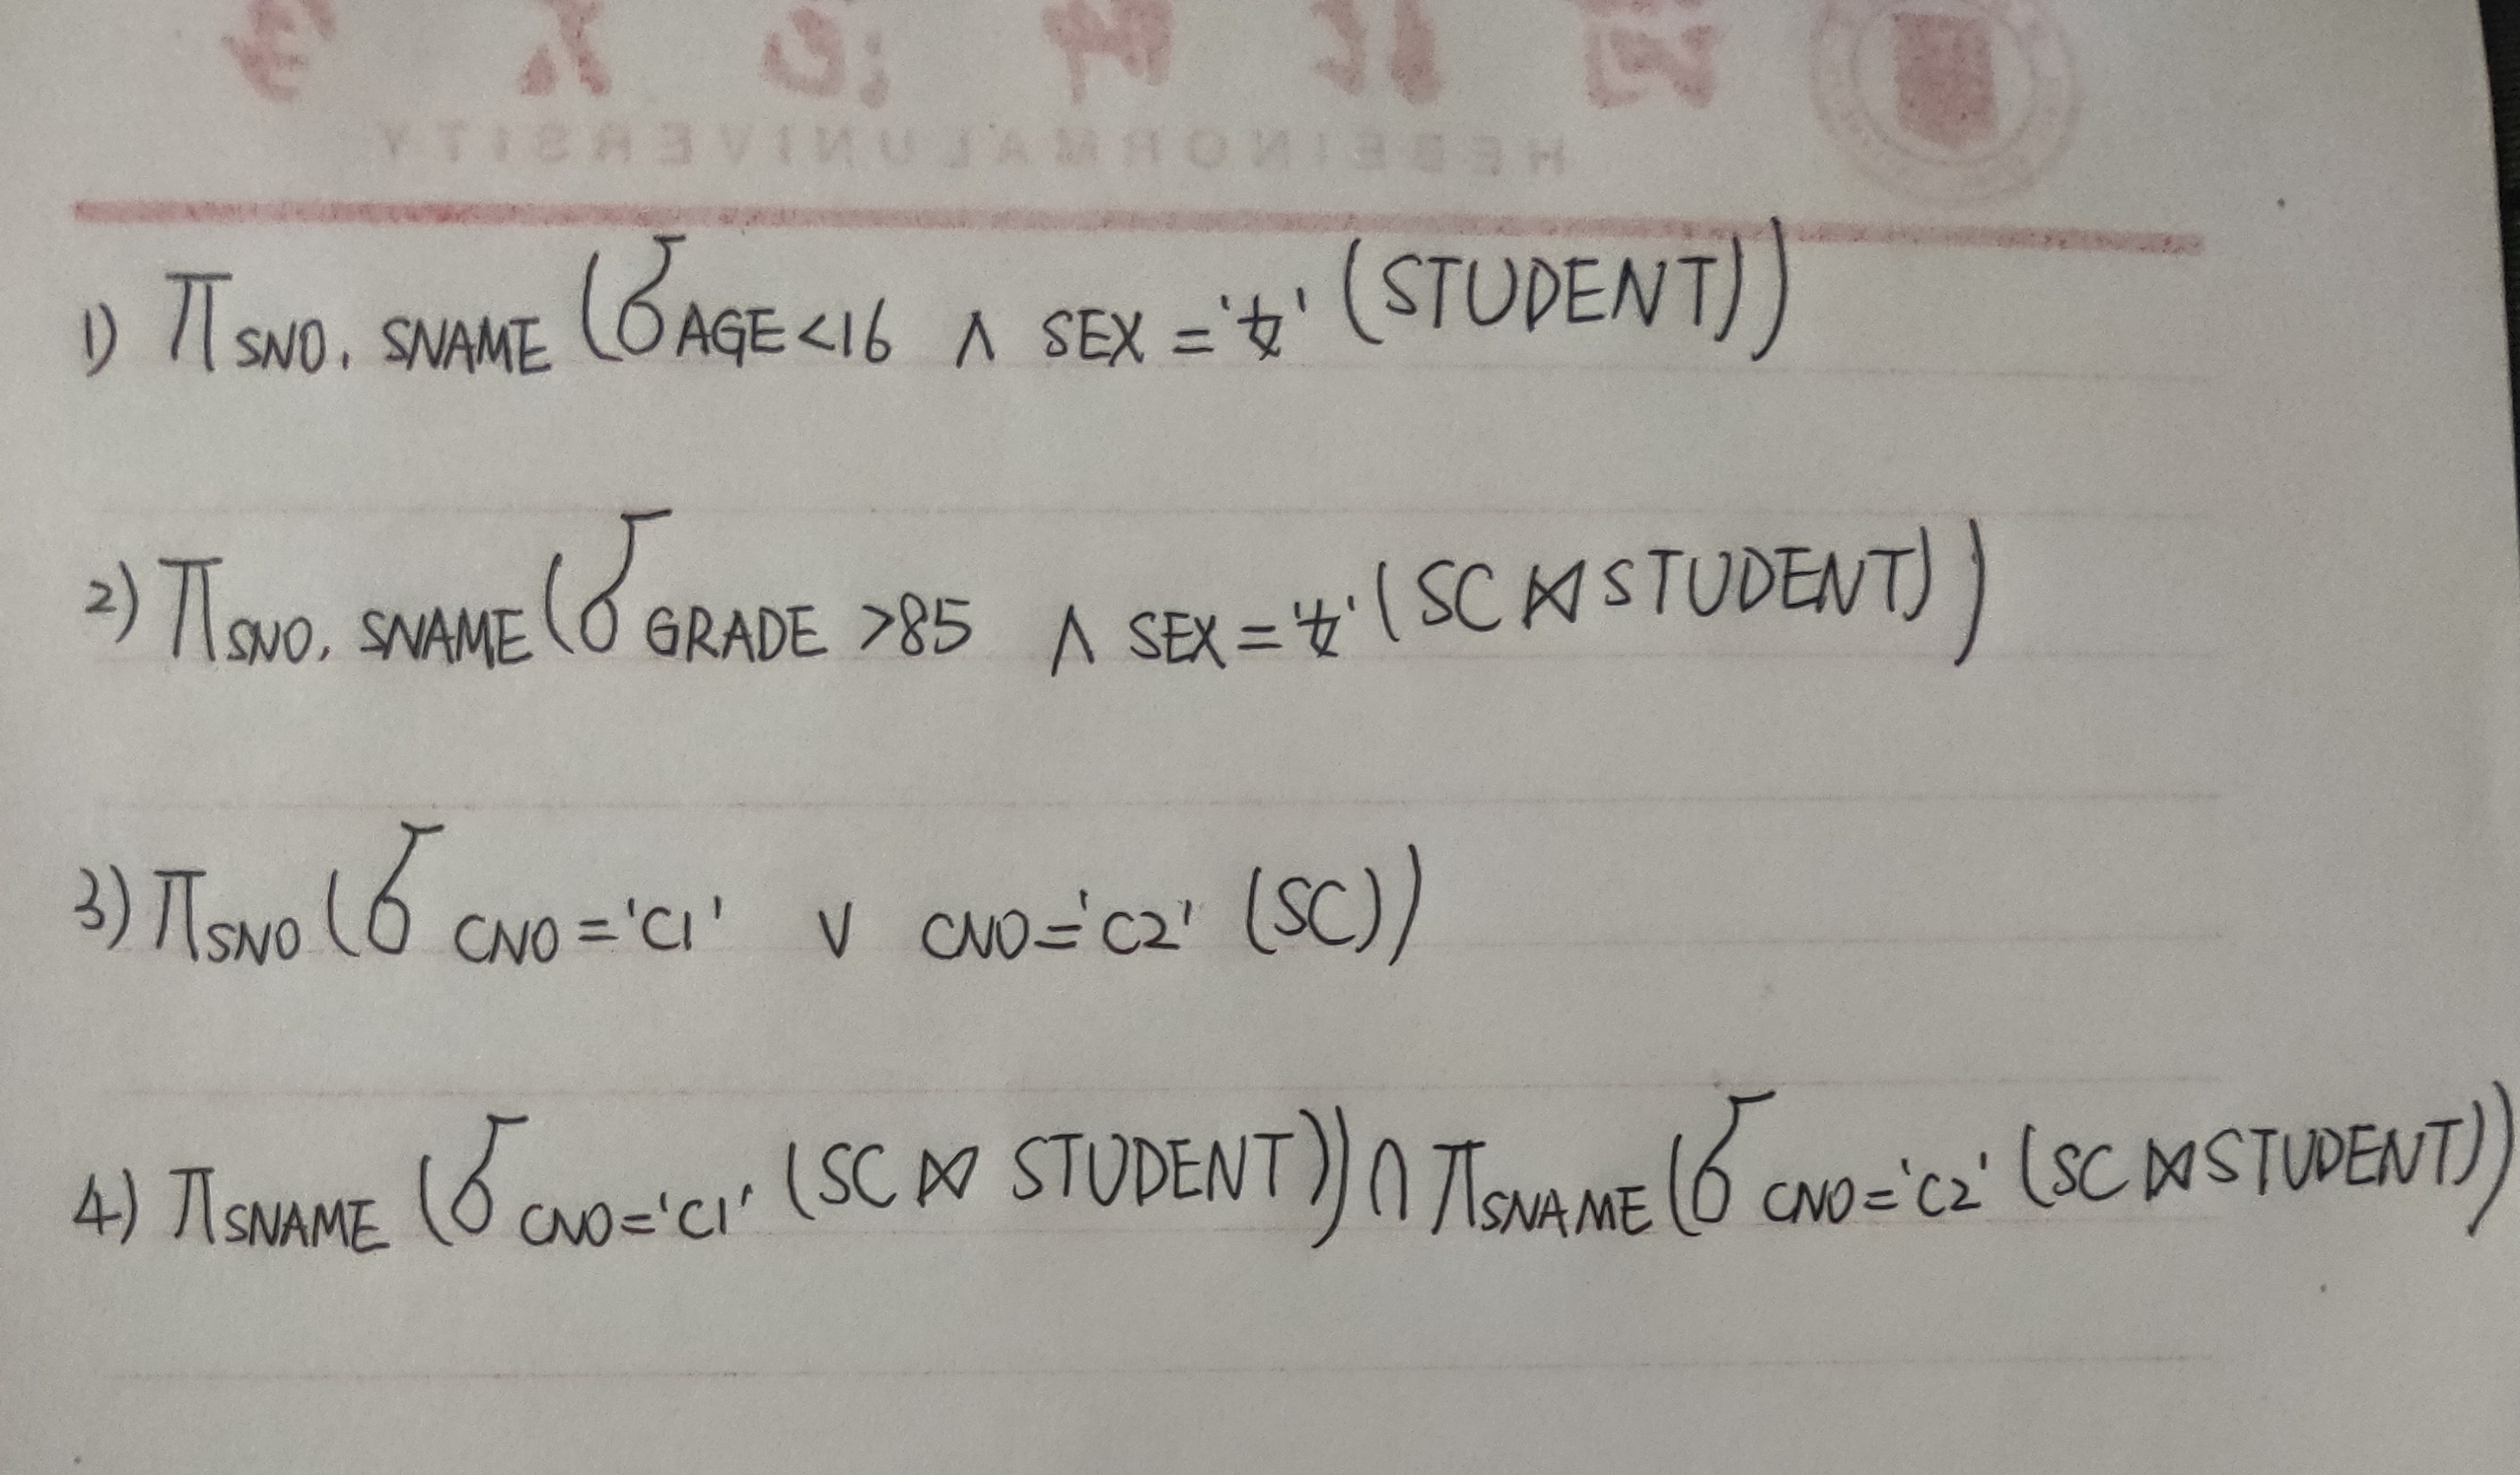 HEBEI NORMAL UNIVERSITY
1) π SNO, SNAME (σ AGE<16 ∧ SEX='女' (STUDENT))
2) π SNO, SNAME (σ GRADE >85 ∧ SEX='女' (SC ⋈ STUDENT))
3) π SNO (σ CNO='C1' ∨ CNO='C2' (SC))
4) π SNAME (σ CNO='C1' (SC ⋈ STUDENT)) ∩ π SNAME (σ CNO='C2' (SC ⋈ STUDENT))